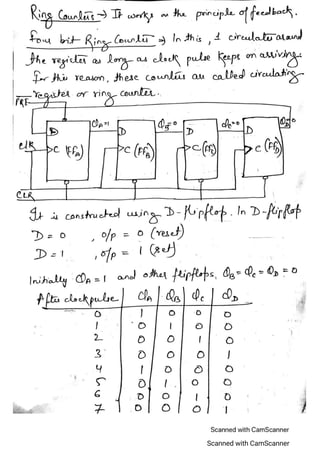 Ring Counters → It works on the principle of feedback.
Four bit Ring Counter → In this, 1 circulates around
the register as long as clock pulse keeps on arriving.
For this reason, these counters are called circulating
register or ring counter.
PRE
QA=1 QB=0 QC=0 QD=0
D D D D
CLK
C (FFA) C (FFB) C (FFC) C (FFD)
CLR
It is constructed using D-flipflop. In D-flipflop
D = 0 , o/p = 0 (reset)
D = 1 , o/p = 1 (set)
Initially QA = 1 and other flipflops, QB = QC = QD = 0
After clockpulse QA QB QC QD
0 1 0 0 0
1 0 1 0 0
2 0 0 1 0
3 0 0 0 1
4 1 0 0 0
5 0 1 0 0
6 0 0 1 0
7 0 0 0 1
Scanned with CamScanner
Scanned with CamScanner